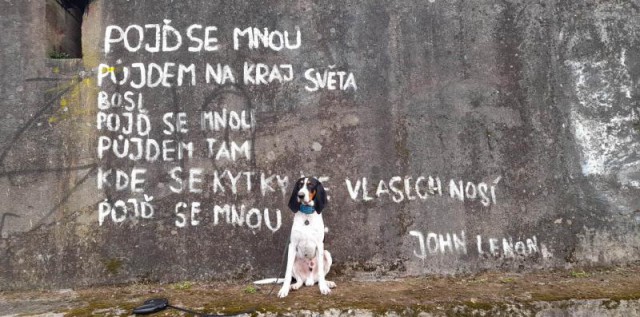 POJĎ SE MNOU
PŮJDEM NA KRAJ SVĚTA
BOSI
POJĎ SE MNOU
PŮJDEM TAM
KDE SE KYTKY VLASECH NOSÍ
POJĎ SE MNOU
JOHN LENON